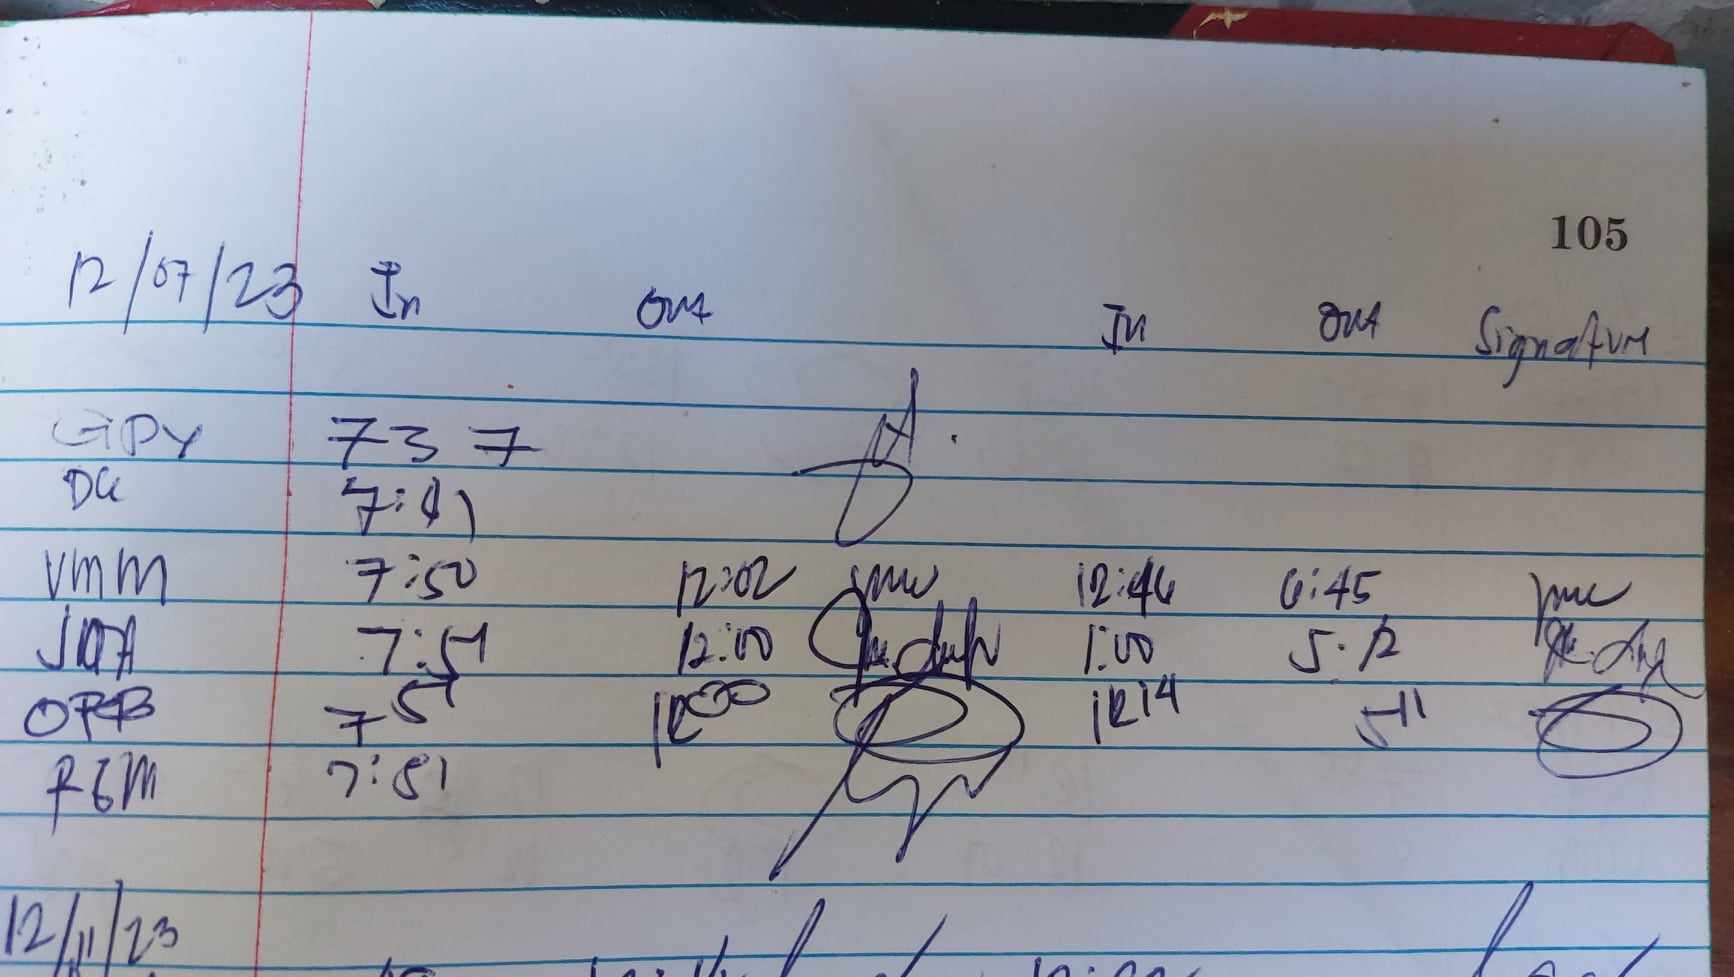 105
12/07/23 In Out In Out Signature
GPY 737
DG 7:41
VMM 7:50 12:02 12:46 6:45
JMA 7:51 12:00 1:00 5:12
OPB 7 51 1200 1214 511
FGM 7:51
12/11/23